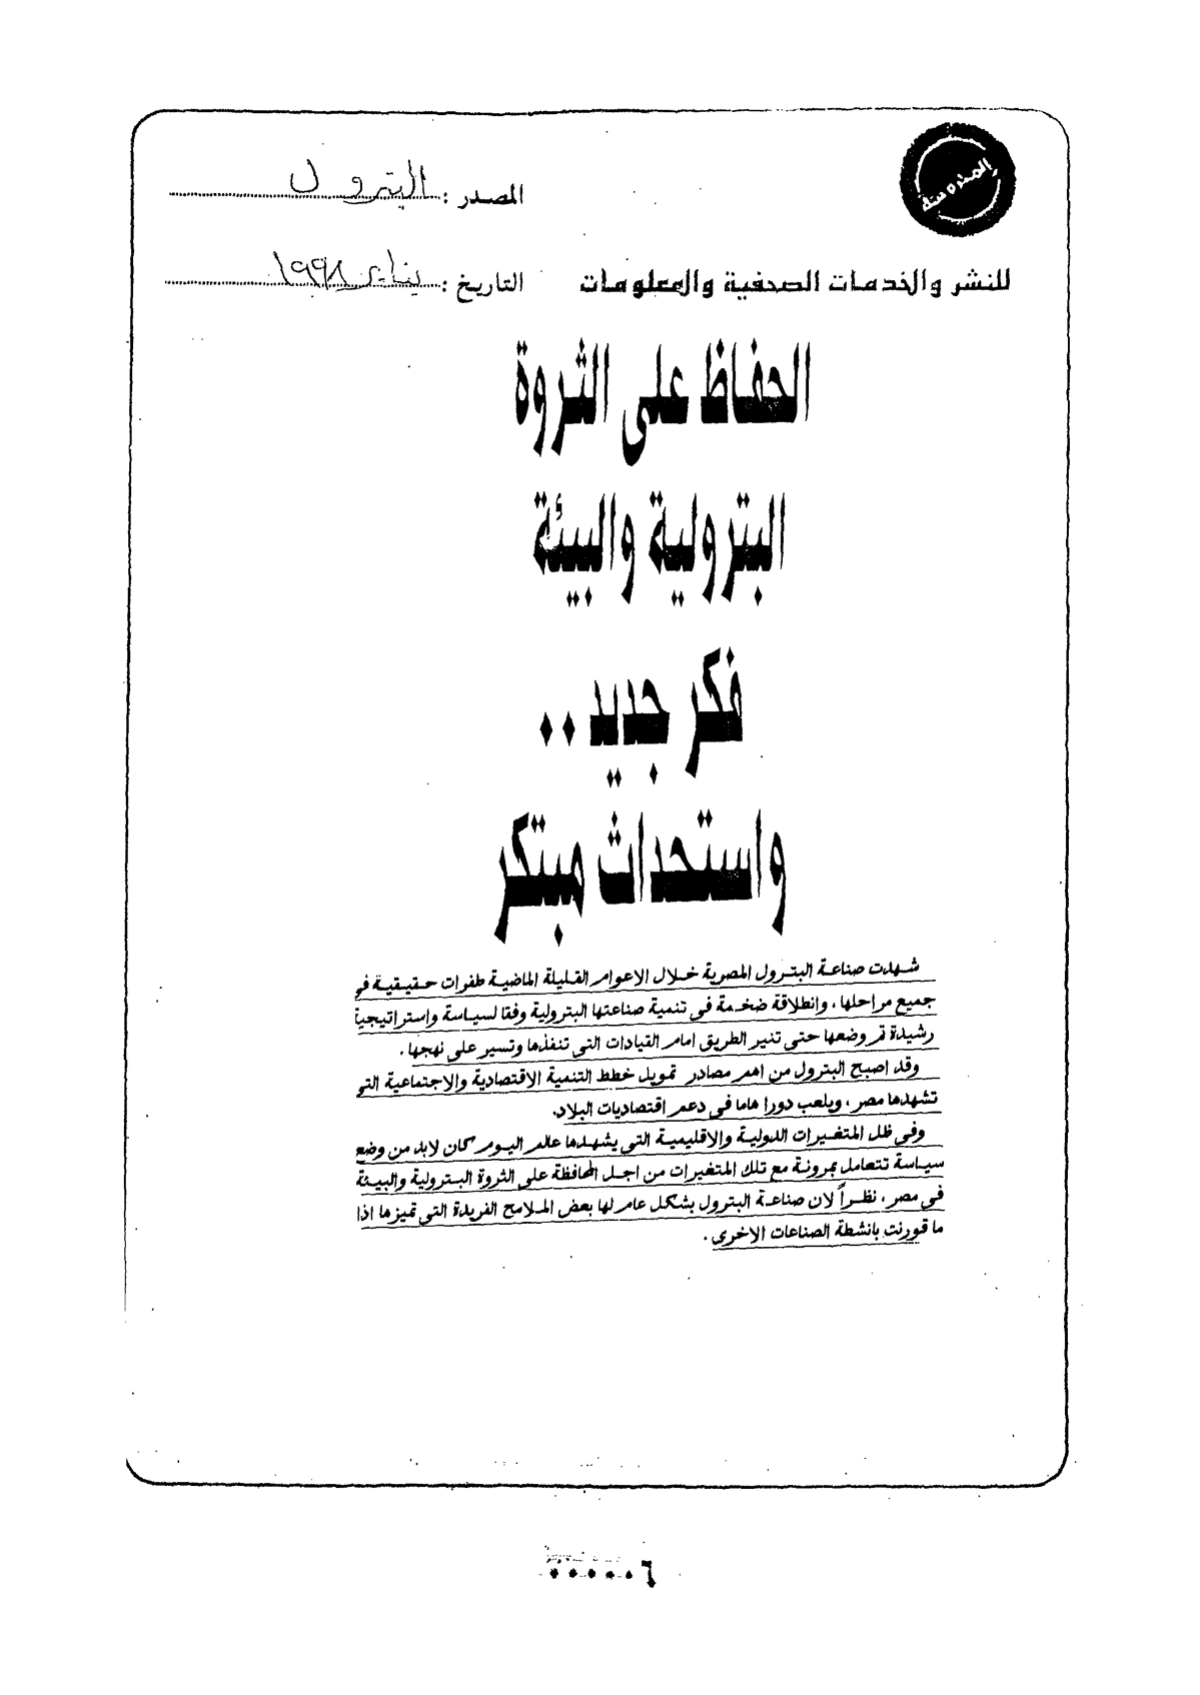 المحروسة
المصدر : البترول
للنشر والخدمات الصحفية والمعلومات
التاريخ : يناير ١٩٩٨
الحفاظ على الثروة
البترولية والبيئة
فكر جديد ..
واستحداث مبتكر
شهدت صناعة البترول المصرية خلال الاعوام القليلة الماضية طفرات حقيقية في
جميع مراحلها، وإنطلاقة ضخمة في تنمية صناعتها البترولية وفقا لسياسة وإستراتيجية
رشيدة تم وضعها حتى تنير الطريق امام القيادات التى تنفذها وتسير على نهجها.
وقد اصبح البترول من اهم مصادر تمويل خطط التنمية الاقتصادية والاجتماعية التى
تشهدها مصر، ويلعب دورا هاما فى دعم اقتصاديات البلاد.
وفي ظل المتغيرات الدولية والاقليمية التي يشهدها عالم اليوم كان لابد من وضع
سياسة تتعامل بمرونة مع تلك المتغيرات من اجل المحافظة على الثروة البترولية والبيئة
في مصر، نظراً لان صناعة البترول بشكل عام لها بعض الملامح الفريدة التى تميزها اذا
ما قورنت بانشطة الصناعات الاخرى.